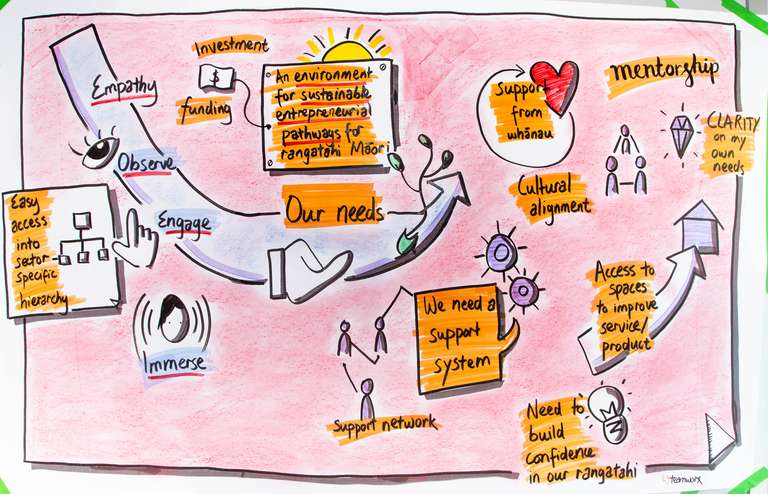 Empathy
Observe
Engage
Immerse
Easy
access
into
sector
specific
hierarchy
Investment
$
funding
An environment
for sustainable
entrepreneurial
pathways for
rangatahi Māori
Our needs
Support
from
whānau
mentorship
CLARITY
on my
own
needs
Cultural
alignment
We need a
support
system
Support network
Access to
spaces
to improve
service/
product
Need to
build
confidence
in our rangatahi
teamwrx